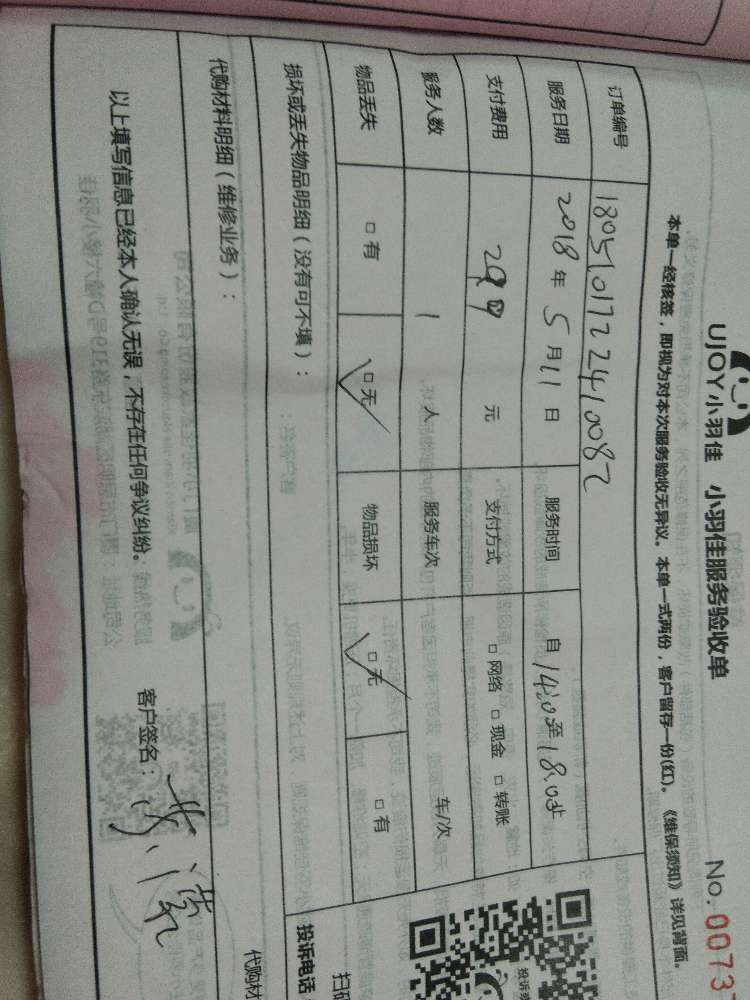 UJOY小羽佳 小羽佳服务验收单 No.0073
本单一经核签，即视为对本次服务验收无异议。本单一式两份，客户留存一份(红)。《维保须知》详见背面。
订单编号 180510172241008２
服务日期 2018年5月11日 服务时间 自14:00至18:00止
支付费用 元 支付方式 □网络 □现金 □转账
服务人数 1人 服务车次 车/次
物品丢失 □有 □无 物品损坏 □无 □有
损坏或丢失物品明细（没有可不填）：
投诉电话
代购材料明细（维修业务）：
代购材
以上填写信息已经本人确认无误，不存在任何争议纠纷。 客户签名：